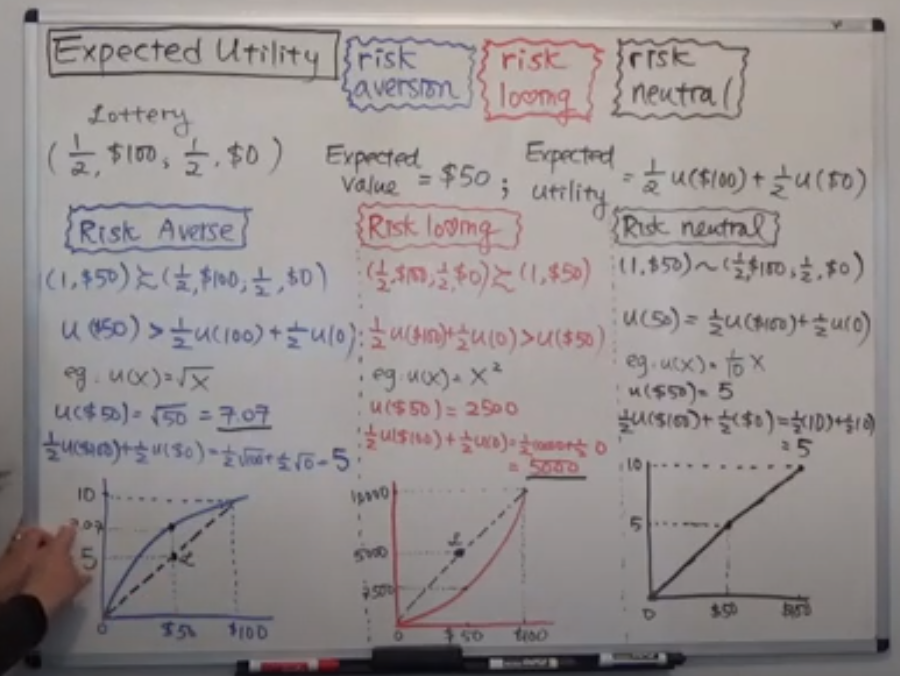 Expected Utility
risk aversion
risk loving
risk neutral
Lottery
(1/2, $100, 1/2, $0)
Expected value = $50 ; Expected utility = 1/2 u($100) + 1/2 u($0)
Risk Averse
(1, $50) ≿ (1/2, $100, 1/2, $0)
u($50) > 1/2 u(100) + 1/2 u(0)
eg. u(x) = √x
u($50) = √50 = 7.07
1/2 u($100) + 1/2 u($0) = 1/2 √100 + 1/2 √0 = 5
10
7.07
5
0
$50
$100
Risk loving
(1/2, $100, 1/2, $0) ≿ (1, $50)
1/2 u($100) + 1/2 u(0) > u($50)
eg. u(x) = x²
u($50) = 2500
1/2 u($100) + 1/2 u(0) = 1/2 10000 + 1/2 0
= 5000
10000
5000
2500
0
$50
$100
Risk neutral
(1, $50) ~ (1/2, $100, 1/2, $0)
u(50) = 1/2 u($100) + 1/2 u(0)
eg. u(x) = 1/10 x
u($50) = 5
1/2 u($100) + 1/2 ($0) = 1/2 (10) + 1/2 (0)
= 5
10
5
0
$50